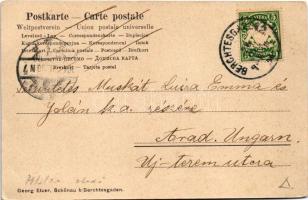 Postkarte — Carte postale
Weltpostverein — Union postale universelle
Levelező-Lap — Correspondenzkarte — Dopisnice
Karta korespondencyjna — Korespondenční lístek
Cartolina postale — Post card — Brefkort
ДОПИСНА КАРТА
Brevkort — Tarjeta postal
BERCHTESG
Tekintetes Muskát Luisa Emma és
Jolán k.a. részére
Arad. Ungarn
Uj-terem utcza
Georg Elser, Schönau b Berchtesgaden.